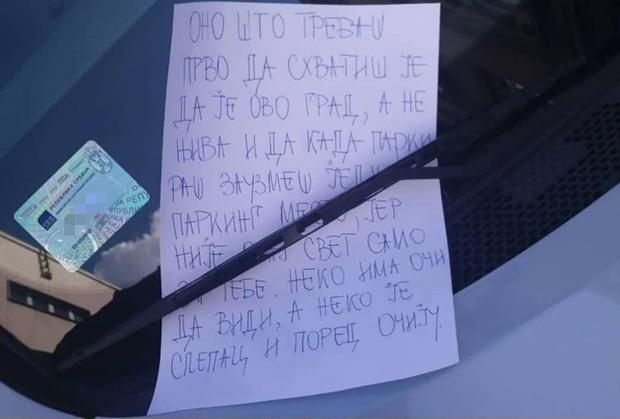 ОНО ШТО ТРЕБАШ
ПРВО ДА СХВАТИШ ЈЕ
ДА ЈЕ ОВО ГРАД, А НЕ
ЊИВА И ДА КАДА ПАРКИ
РАШ ЗАУЗМЕШ
ПАРКИНГ ЈЕР
НИЈЕ СВЕТ САМО
ТЕБЕ. НЕКО ИМА ОЧИ
ДА ВИДИ, А НЕКО ЈЕ
СЛЕПАЦ И ПОРЕД ОЧИЈУ.
РЕПУБЛИКА СРБИЈА